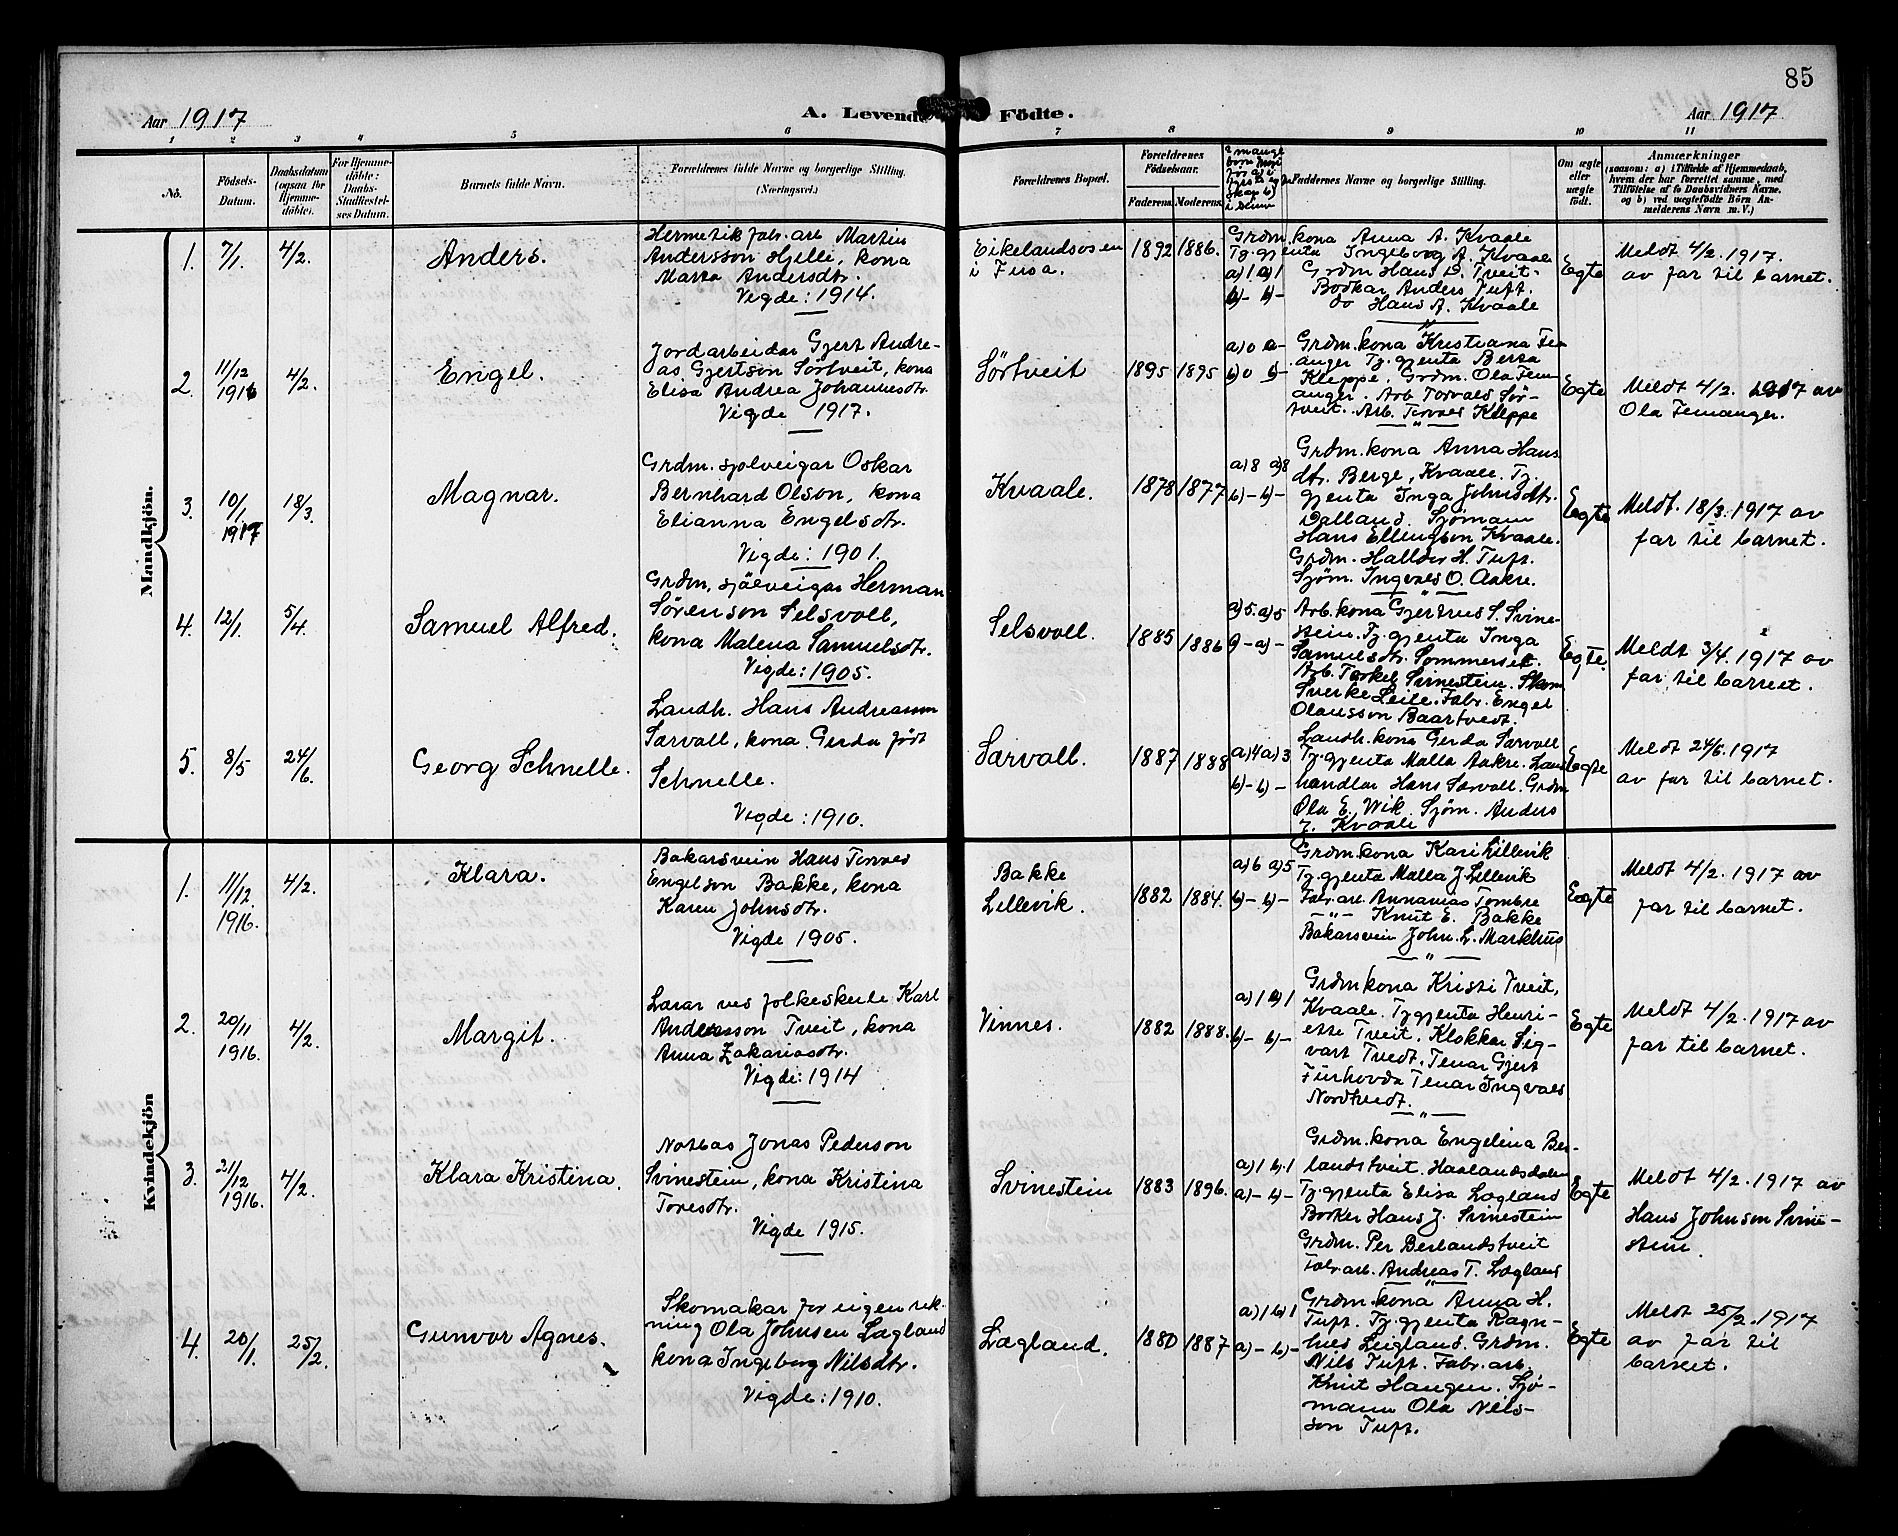 85
Aar 1917
A. Levende Födte.
Aar 1917
1 2 3 4 5 6 7 8 9 10 11
No.
Födsels-
Datum.
Daabsdatum
(ogsaa for
Hjemme-
döbte).
For Hjemme-
döbte:
Daabs-
Stadfæstel-
ses Datum.
Barnets fulde Navn.
Forældrenes fulde Navne og borgerlige Stilling.
(Næringsvei.)
Forældrenes Bopæl.
Forældrenes
Födselsaar.
Faderens. Moderens.
Faddernes Navne og borgerlige Stilling.
Om ægte
eller
uægte
födt.
Anmærkninger
(saasom: a) i Tilfælde af Hjemmedaab,
hvem der har forrettet samme, med
Tilföielse af to Daabsvidners Navne,
og b) ved uægtefödte Börn An-
melderens Navn m. V.)
Mandkjön.
1. 7/1. 4/2.
Anders.
Hermetik fabr. arb Martin
Andersson Hjelle, kona
Marta Andersdtr.
Vigde: 1914.
Eikelandsosen
i Fusa.
1892 1886.
a) 1 a) 1
b) - b) -
Grdm. kona Anna A. Kvaale
Tj. gjenta Ingeborg A. Kvaale
Grdm Hans D. Tveit-
Bodkar Anders Tuft.
do Hans A. Kvaale
Egte
Meldt 4/2. 1917.
av far til barnet.
2. 11/12 1916 4/2.
Engel.
Jordarbeidar Gjert Andre-
as Gjertson Sörtveit, kona
Elisa Andrea Johannesdtr.
Vigde 1917.
Sørtveit
1895 1895
a) 0 a-
b) 0 b-
Grdm. kona Kristiana Fem-
anger Tj. gjenta Berta
Kleppe, Grdm. Ola Fem
anger. Arb Torvald Sør-
tveit. Arb. Torvald Kleppe
Egte
Meldt 4/2. 1917 av
Ola Femanger.
3. 10/1. 1917 18/3.
Magnar.
Grdm. sjølveigar Oskar
Bernhard Olson, kona
Elianna Engelsdtr.
Vigde: 1901.
Kvaale.
1878 1877
a) 8 a) 8
b) - b) -
Grdm. kona Anna Hans
dtr. Berge, Kvaale. Tj.
gjenta Inga Johnsdtr.
Dalland. Sjømann
Hans Ellingson Kvaale.
Grdm. Halldor H. Tuft.
Sjøm. Ingvald O. Aakre.
Egte
Meldt. 18/3. 1917 av
far til barnet.
4. 12/1. 5/4.
Samuel Alfred.
Grdm. sjølveigar Herman
Sörenson Selsvoll,
kona Malena Samuelsdtr.
Vigde: 1905.
Selsvoll.
1885 1886
a) 5. a) 5
Arb. kona Gjertrud S. Svine-
stein. Tj. gjenta Inga
Samuelsdtr. Sommerset.
Arb. Torkel Svinestein. Skom
Sverke Leite. Fabr. Engel
Olausson Baartvedt.
Egte.
Meldt 3/4. 1917 av
far til barnet.
5. 8/5 24/6.
Georg Schnelle.
Landh. Hans Andreassen
Særvoll, kona Gerda født
Schnelle.
Vigde: 1910.
Særvoll.
1887 1888
a) 4 a) 3
b) - b) -
Landh. kona Gerda Særvoll
Tj. gjenta Malla Aakre. Land
handlar Hans Særvoll. Grdm
Ola E. Wik. Sjøm. Anders
J. Kvaale
Egte
Meldt 24/6. 1917
av far til barnet.
Kvindekjön
1. 11/12. 1916. 4/2.
Klara.
Bakarsvein Hans Torvald
Engelson Bakke, kona
Karen Johnsdtr.
Vigde 1905.
Bakke
Lillevik.
1882 1884.
a) 6 a) 5
b) - b) -
Grdm. kona Kari Lillevik
Tj. gjenta Malla J. Lillevik
Fabr. arb. Annanias Tombre
-"- Knut E. Bakke
Bakarsvein John. L. Markhus
Egte
Meldt 4/2. 1917 av
far til barnet.
2. 20/11 1916. 4/2.
Margit.
Lærar ved folkeskule Karl
Andersson Tveit, kona
Anna Zakariasdtr.
Vigde: 1914
Vinnes.
1882 1888.
a) 1 a) 1
b) - b) -
Grdm kona Kristi Tveit,
Kvaale. Tj. gjenta Henri-
ette Tveit. Klokkar Sig-
vart Tvedt. Tenar Gjert
Furhovda Tenar Ingvald
Nordtvedt.
Egte
Meldt 4/2. 1917 av
far til barnet.
3. 21/12 1916. 4/2.
Klara Kristina.
Notbas Jonas Pederson
Svinestein, kona Kristina
Toresdtr.
Vigde 1915.
Svinestein
1883 1896.
a) 1 b) 1
a) - b) -
Grdm. kona Engelina Ber-
landstveit. Haalandsdalen
Tj. gjenta Elisa Lægland
Bøker Hans J. Svinestein
Grdm. Per Berlandstveit
Fabr. arb. Andreas T. Lægland
Egte
Meldt 4/2. 1917 av
Hans Johnson Svine-
stein.
4. 20/1. 25/2.
Gunvor Agnes.
Skomakar for eigen rek-
ning Ola Johnsen Lægland
kona Ingeborg Nilsdtr.
Vigde: 1910.
Lægland.
1880 1887
a) 1 b) 1
a) - b) -
Grdm. kona Anna H.
Tuft. Tj. gjenta Ragn-
hild Leigland. Grdm.
Nils Tuft. Fabr. arb.
Knut Haugen. Sjø-
mann Ola Nils-
son Tuft.
Egte
Meldt 25/2. 1917
av far til
barnet.